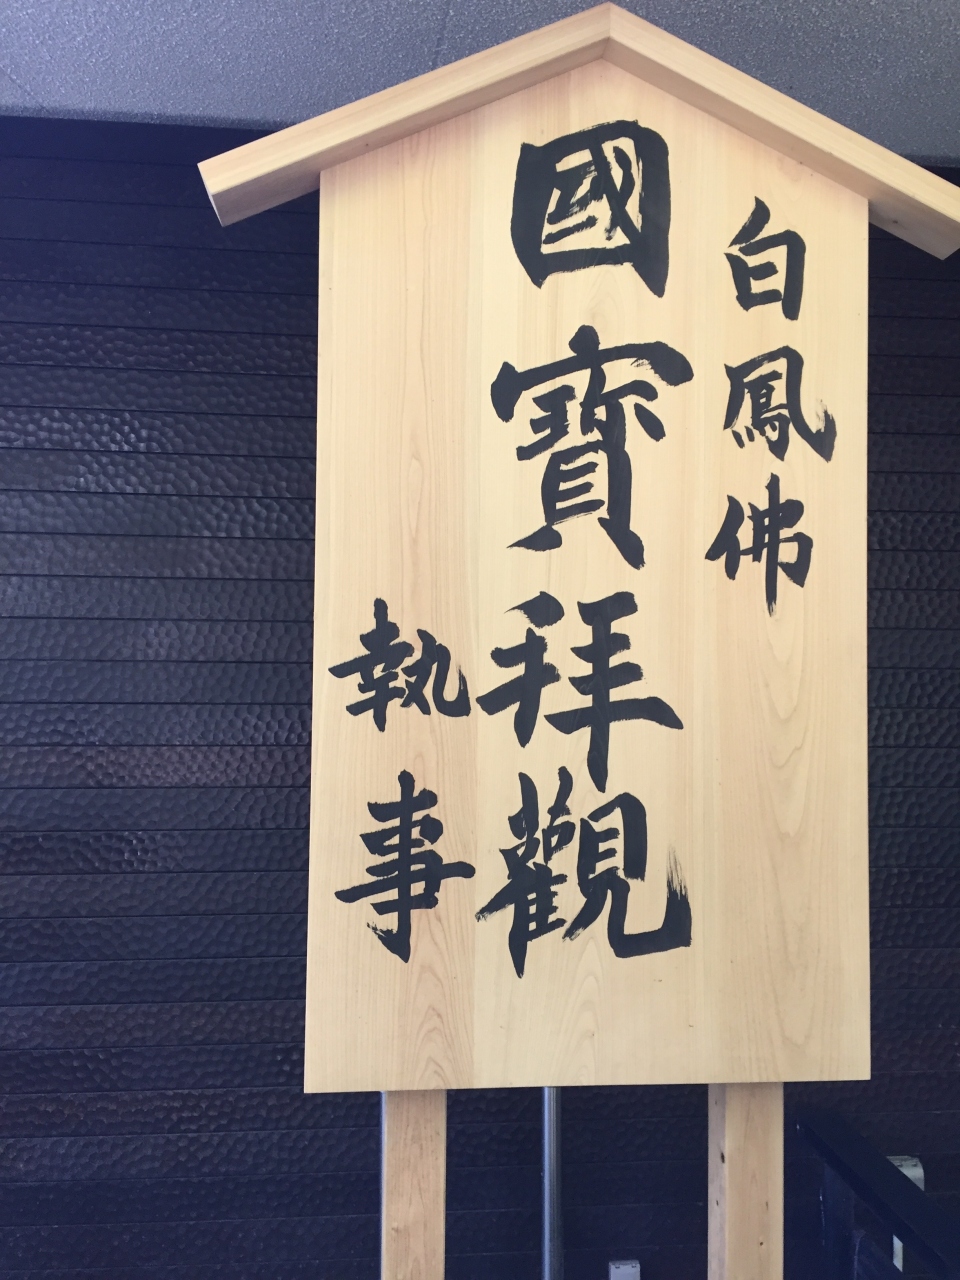 白鳳佛
國寶拜觀
執事